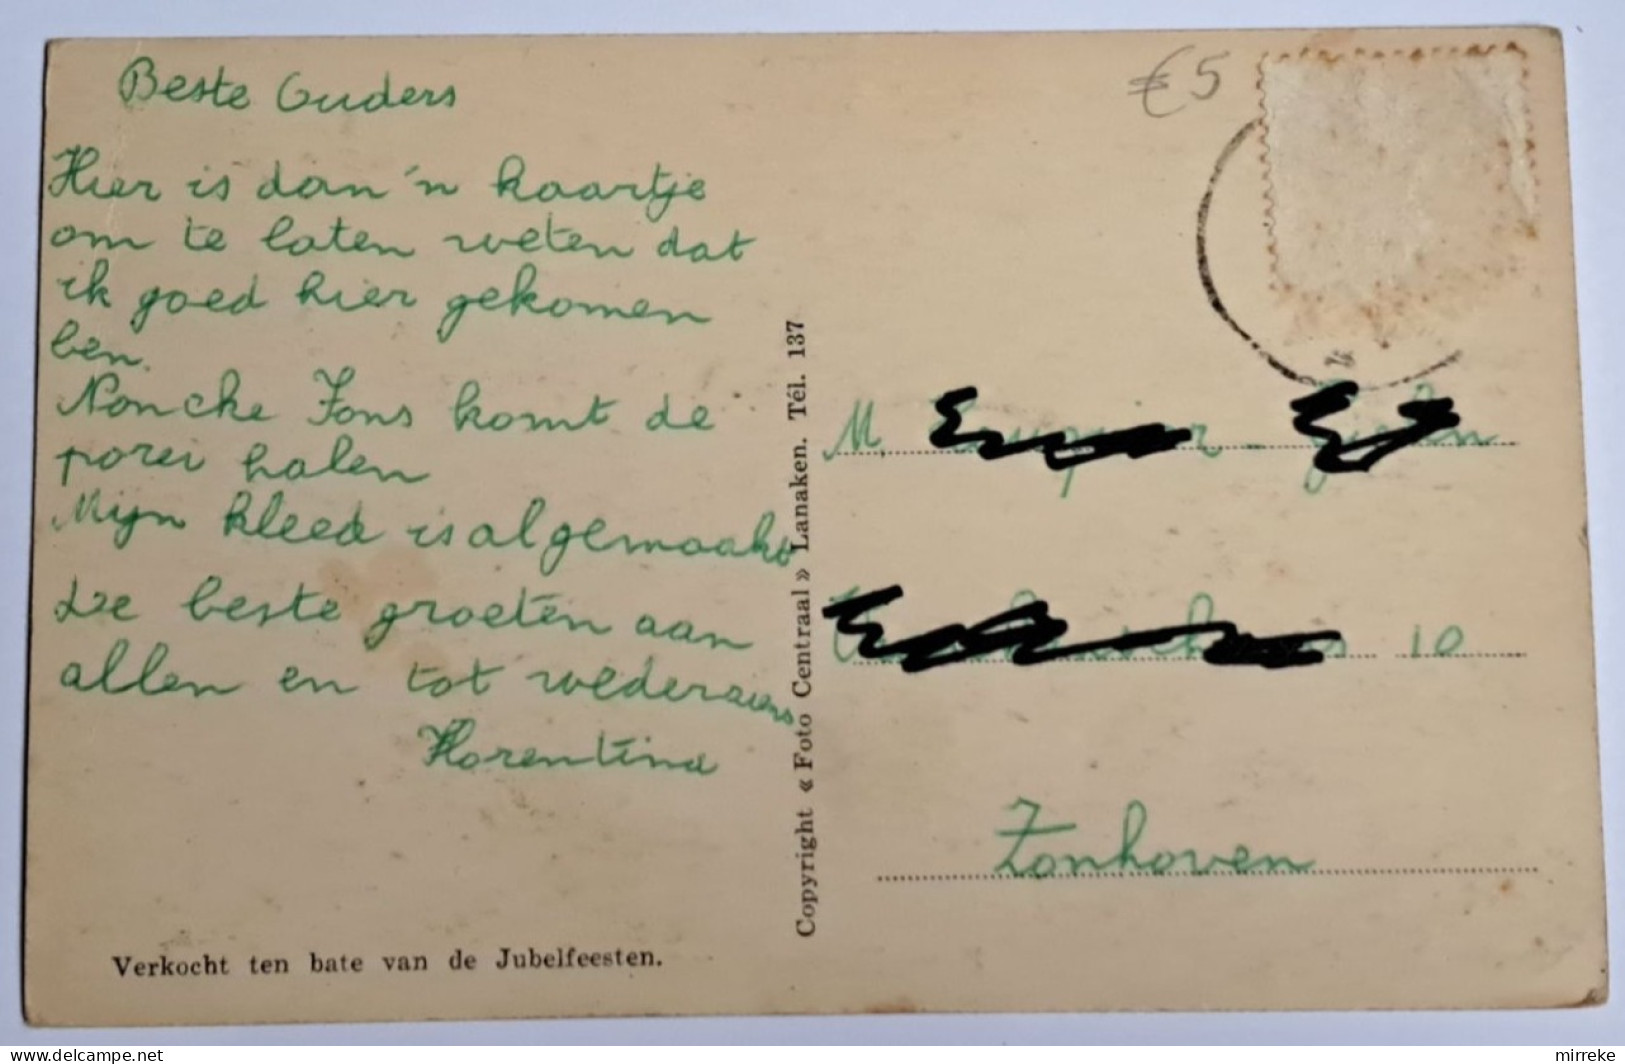 Beste Ouders
€5
Hier is dan 'n kaartje
om te laten weten dat
ik goed hier gekomen
ben.
Noncke Fons komt de
porei halen
Mijn kleed is al gemaakt
De beste groeten aan
allen en tot wederziens
Florentina
Verkocht ten bate van de Jubelfeesten.
Copyright « Foto Centraal » Lanaken. Tél. 137
M.
10
Zonhoven
mirreke